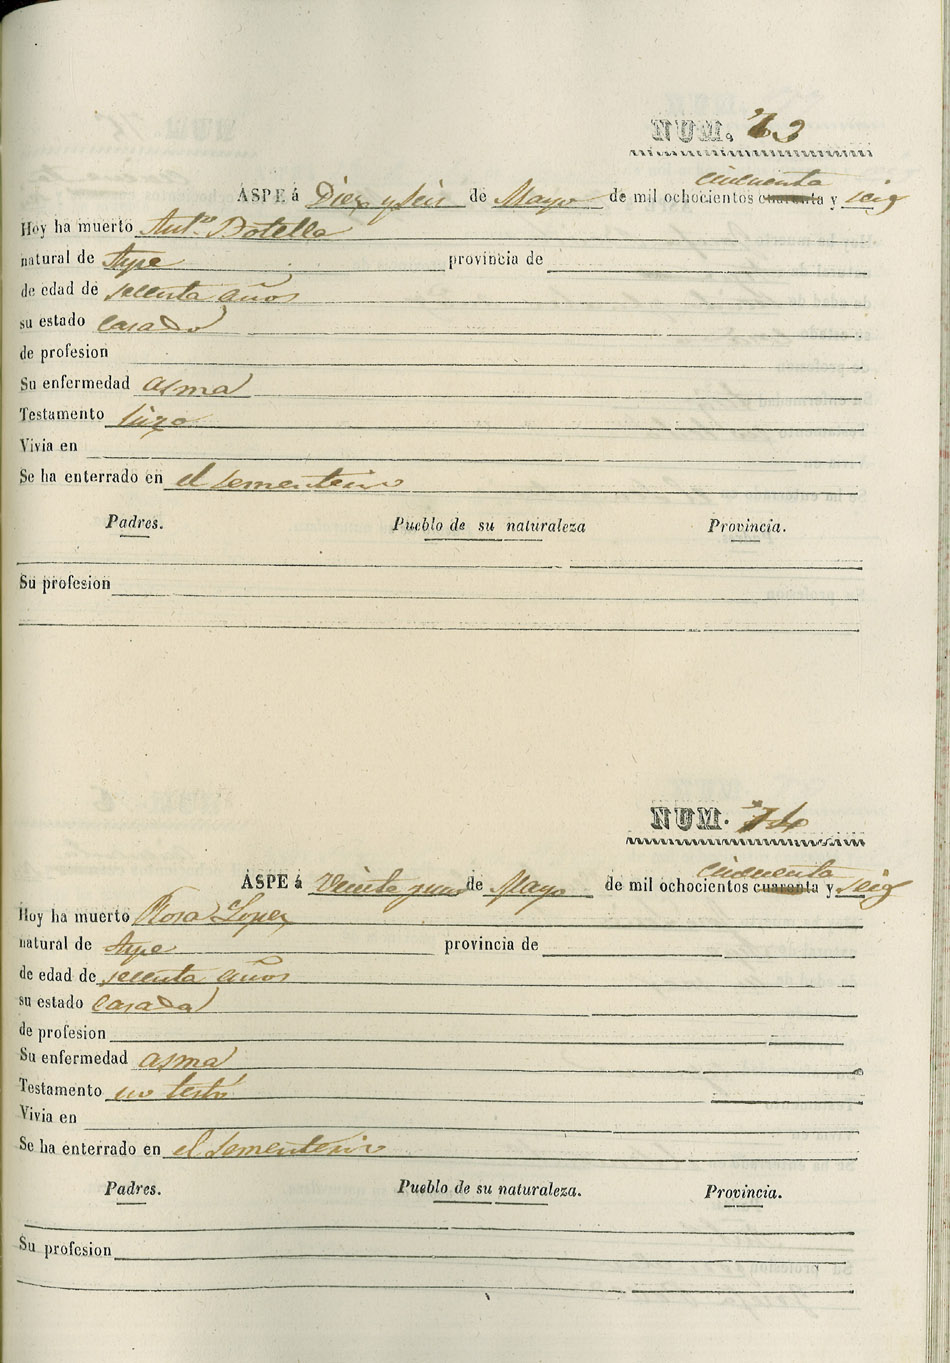 NUM. 73
cincuenta
ASPE á Diez y seis de Mayo de mil ochocientos cuarenta y seis
Hoy ha muerto Antº Botella
natural de Aspe provincia de
de edad de años
su estado Casado
de profesion
Su enfermedad asma
Testamento hizo
Vivia en
Se ha enterrado en el sementerio
Padres. Pueblo de su naturaleza Provincia.
Su profesion
NUM. 74
cincuenta
ASPE á Veinte y uno de Mayo de mil ochocientos cuarenta y seis
Hoy ha muerto Rosa Lopez
natural de Aspe provincia de
de edad de años
su estado Casada
de profesion
Su enfermedad asma
Testamento no testó
Vivia en
Se ha enterrado en el sementerio
Padres. Pueblo de su naturaleza. Provincia.
Su profesion